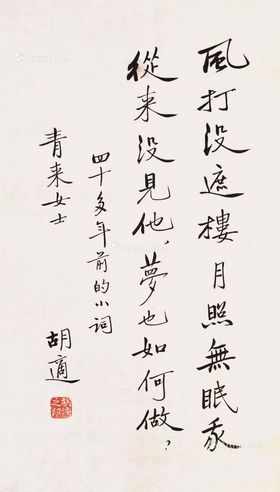 風打没遮樓月照無眠我
從来没見他，夢也如何做？
四十多年前的小词
青来女士
胡適
胡適之印